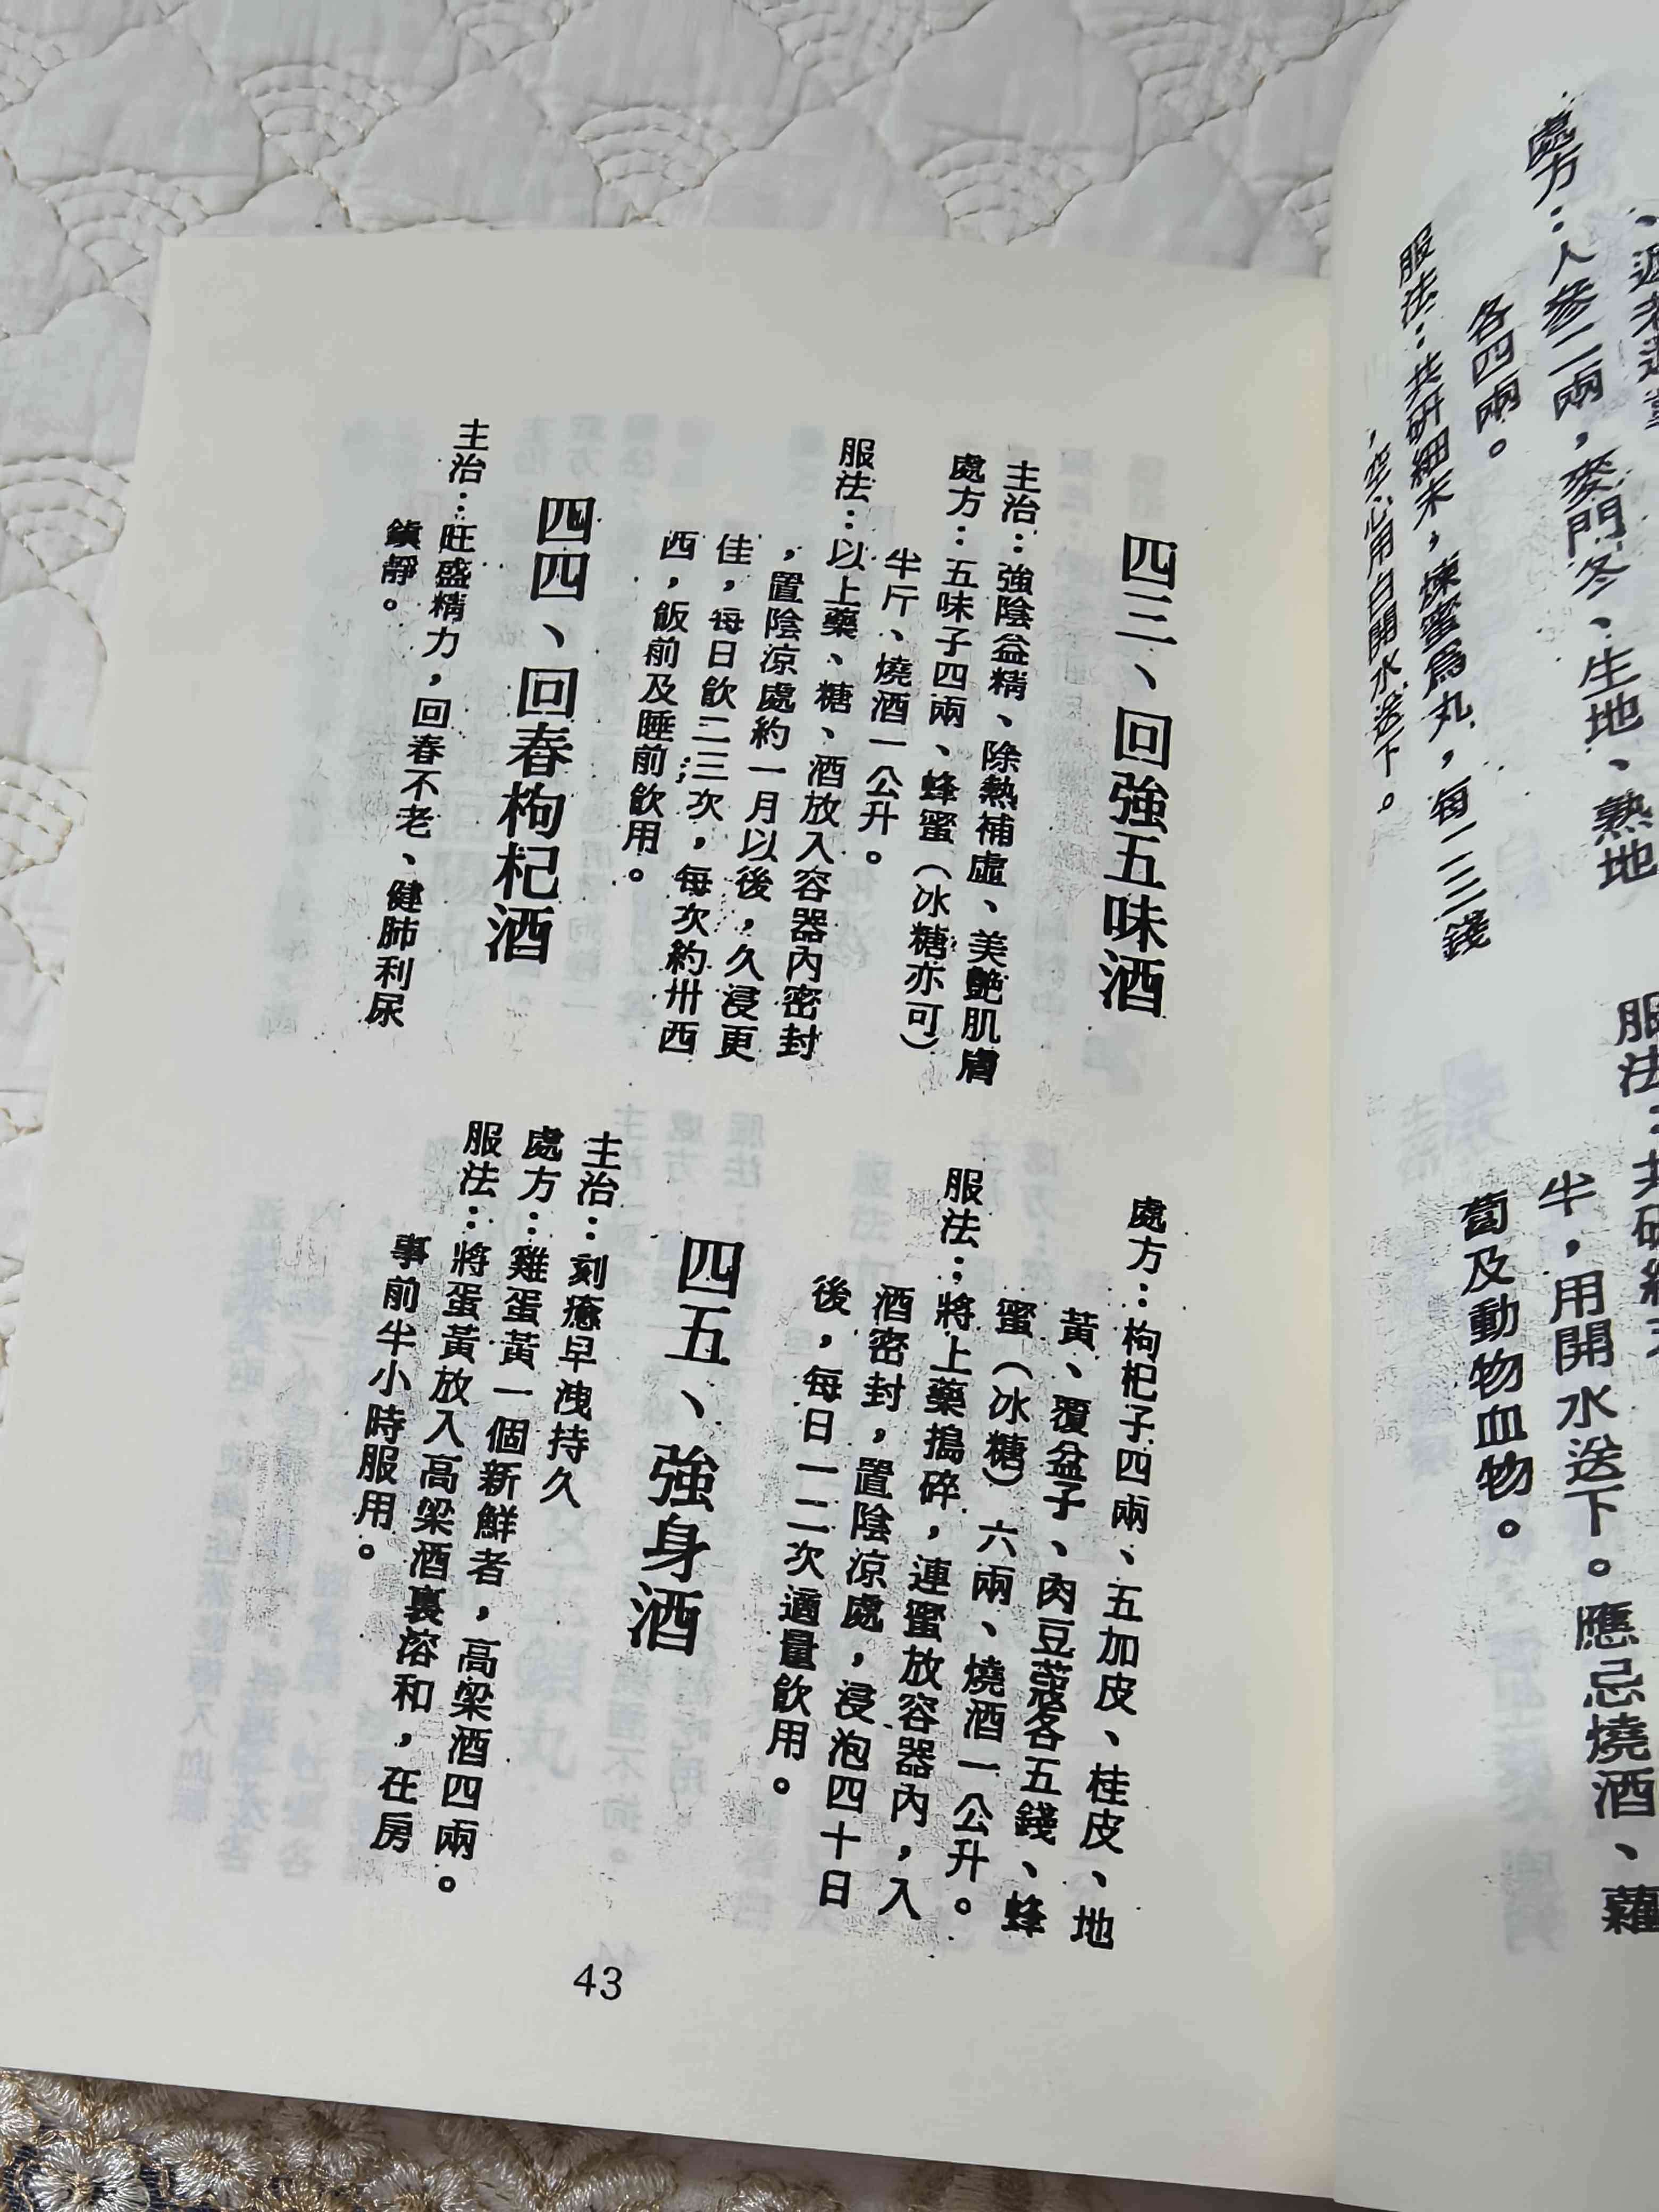 處方：人參二兩，麥門冬、生地、熟地
各四兩。
服法：共研細末，煉蜜爲丸，每二三錢
，空心用白開水送下。
服法：共研細末
半，用開水送下。應忌燒酒、蘿
蔔及動物血物。
四三、回強五味酒
主治：強陰益精、除熱補虛、美艷肌膚
處方：五味子四兩、蜂蜜（冰糖亦可）
半斤、燒酒一公升。
服法：以上藥、糖、酒放入容器內密封
，置陰涼處約一月以後，久浸更
佳，每日飲二三次，每次約卅西
西，飯前及睡前飲用。
四四、回春枸杞酒
主治：旺盛精力，回春不老、健肺利尿
鎮靜。
處方：枸杞子四兩、五加皮、桂皮、地
黃、覆盆子、肉豆蔻各五錢、蜂
蜜（冰糖）六兩、燒酒一公升。
服法：將上藥搗碎，連蜜放容器內，入
酒密封，置陰涼處，浸泡四十日
後，每日一二次適量飲用。
四五、強身酒
主治：刻癒早洩持久
處方：雞蛋黃一個新鮮者，高梁酒四兩。
服法：將蛋黃放入高梁酒裏溶和，在房
事前半小時服用。
43